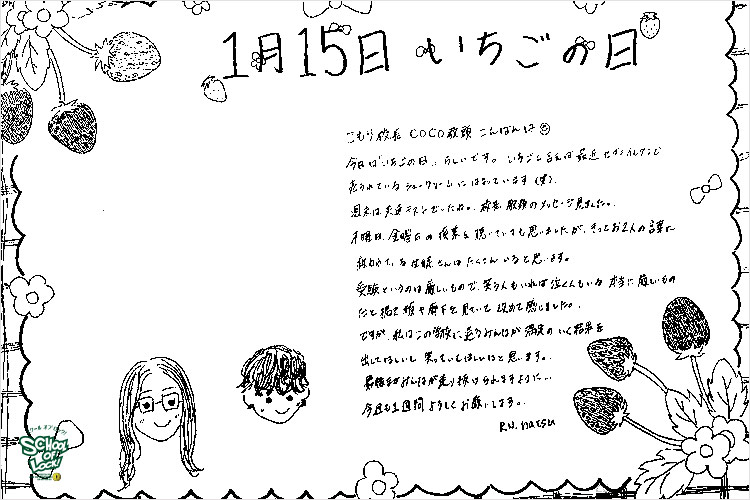 1月15日 いちごの日
こもり校長 COCO教頭 こんばんは
今日は"いちごの日"らしいです。いちごと言えば最近セブンイレブンで
売られているシュークリームにはまっています(笑)。
週末は共通テストでしたね。校長、教頭のメッセージ見ました。
木曜日、金曜日の授業を聴いていても思いましたが、きっとお2人の言葉に
救われている生徒さんはたくさんいると思います。
受験というのは厳しいもので、笑う人もいれば泣く人もいる 本当に厳しいもの
だと掲示板や廊下を見ていて改めて感じました。
ですが、私はこの学校に通うみんなが満足のいく結果を
出してほしいし 笑っていてほしいなと思います。
最後までみんなが走り抜けられますように…
今日も1週間よろしくお願いします。
R.N. natsu
SCHOOL OF LOCK!